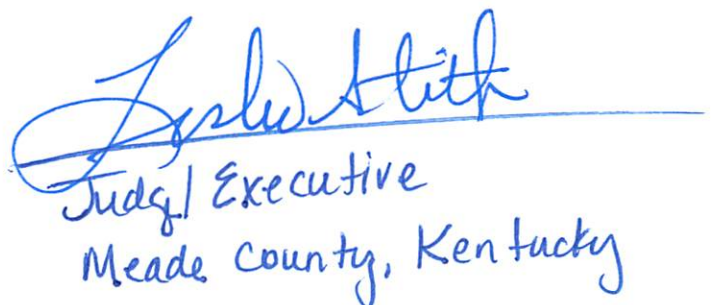 Leslie Stith
Judge/Executive
Meade County, Kentucky